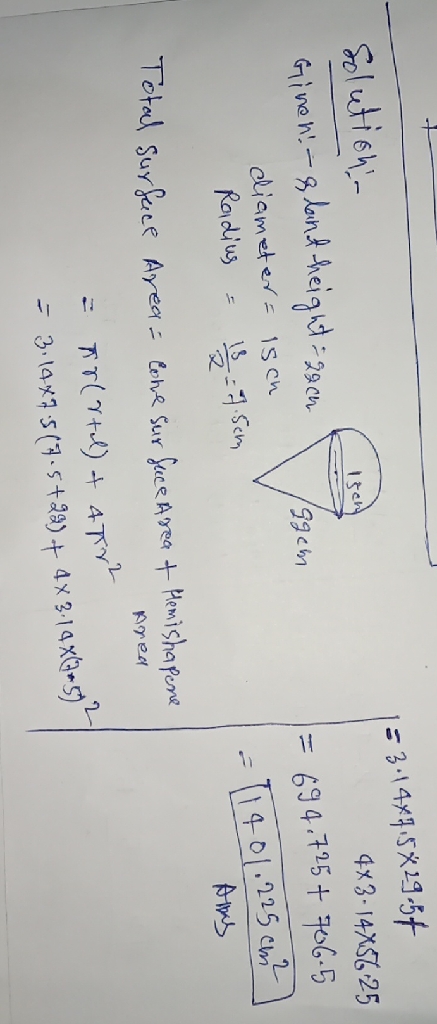 Solution:-
Given:- slant height = 22cm
diameter = 15cm
Radius = 15/2 = 7.5cm
15cm
22cm
Total Surface Area = Cone Surface Area + Hemishapere Area
= πr(r+l) + 4πr²
= 3.14×7.5(7.5+22) + 4×3.14×(7.5)²
= 3.14×7.5×29.5+
4×3.14×56.25
= 694.725 + 706.5
= 1401.225 cm²
Ans